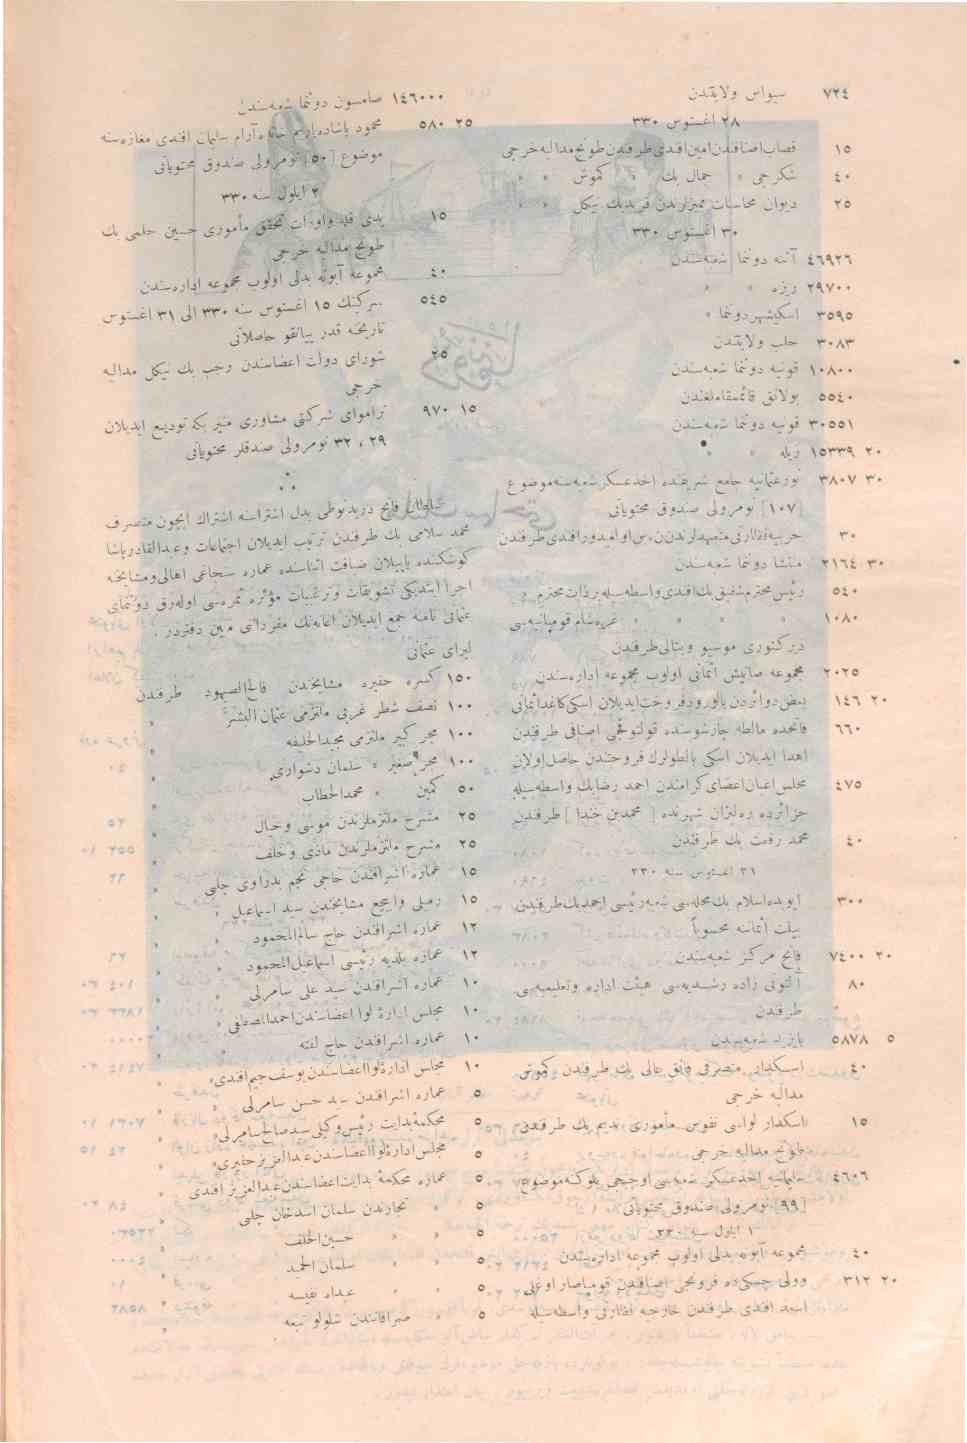 ٧٢٤ سيواس ولايتندن
٢٨ اغستوس ٣٣٠
١٥ قصاب اصنافندن امين افندى طرفندن طونج مداليه خرجى
٤٠ شكرجى » جمال بك » كموش » »
٢٥ ديوان محاسبات مميزلرندن فريد بك نيكل » »
٣٠ اغستوس ٣٣٠
٤٦٩٢٦ آتنه دوننما شعبه‌سندن
٢٩٧٠٠ ريزه » »
٣٥٩٥ اسكيشهر دوننما »
٣٠٨٣ حلب ولايتندن
١٠٨٠٠ قونيه دوننما شعبه‌سندن
٥٥٤٠ بولانق قائمقاملغندن
٣٠٥٥١ قونيه دوننما شعبه‌سندن
٢٠ ١٥٣٣٩ زيله » »
٣٠ ٣٨٠٧ نور عثمانيه جامع شريفنده اخذعسكر شعبه‌سنه موضوع
[١٠٧] نومرولى صندوق محتوياتى
٣٠ حربيه نظارتى متعهدلرندن اوافيدور افندى طرفندن
٣٠ ٢١٦٤ منتشا دوننما شعبه‌سندن
٥٤٠ رئيس محترم شفيق بك افندى واسطه‌سيله بر ذات محترم »
١٠٨٠ » » » » غزه شام قومپانيه‌سى
ديركتورى موسيو ويتالى طرفندن
٢٠٢٥ مجموعه صاتيش اثمانى اولوب مجموعه اداره‌سندن
٢٠ ١٤٦ بعض دوائردن بالورود فروخت ايديلان اسكى كاغد اثمانى
٦٦٠ فاتحده مالطه چارشوسنده قولتوقجى اصنافى طرفندن
اهدا ايديلان اسكى پالطولرك فروختندن حاصل اولان
٤٧٥ مجلس اعيان اعضاى كرامندن احمد رضا بك واسطه‌سيله
جزائرده وهران شهرنده [محمد بن خدا] طرفندن
٤٠ محمد رفعت بك طرفندن
٣١ اغستوس سنه ٣٣٠
٣٠٠ ايوبده اسلام بك محله‌سى شعبه رئيسى احمد بك طرفندن
بيلت اثماننه محسوباً
٢٠ ٧٤٠٠ فاتح مركز شعبه‌سندن
٨٠ آلتونى زاده رشديه‌سى هيئت اداره وتعليميه‌سى
طرفندن
٥ ٥٨٧٨ بايزيد شعبه‌سندن
٤٠ اسكدار متصرفى فائق عالى بك طرفندن كموش
مداليه خرجى
١٥ اسكدار لواسى نفوس مأمورى نديم بك طرفندن
طونج مداليه خرجى
٤٦٠٦ سليمانيه اخذعسكر شعبه‌سى اوچنجى بلوكنه موضوع
[٩٩] نومرولى صندوق محتوياتى
١ ايلول سنه ٣٣٠
٤٠ مجموعه آبونه بدلى اولوب مجموعه اداره‌سندن
٢٠ ٣١٢ فرونجى اصنافندن اوغلى
اسعد افندى طرفندن خارجيه نظارتى واسطه‌سيله
١٤٦٠٠٠ صامسون دوننما شعبه‌سندن
٢٥ ٥٨٠ محمود پاشاده آرام سليمان افندى مغازه‌سنه
موضوع [٥٠] نومرولى صندوق محتوياتى
٢ ايلول سنه ٣٣٠
١٥ يدى قله واردات تحقق مأمورى حسين حلمى بك
طونج مداليه خرجى
٤٠ مجموعه آبونه بدلى اولوب مجموعه اداره‌سندن
٥٤٥ سركينك ١٥ اغستوس سنه ٣٣٠ الى ٣١ اغستوس
تاريخنه قدر پيانقو حاصلاتى
٢٥ شوراى دولت اعضاسندن رجب بك نيكل مداليه
خرجى
١٥ ٩٧٠ تراموای شركتى مشاورى منير بكه توديع ايديلان
٢٩ ، ٣٢ نومرولى صندقلر محتوياتى
سلطان فاتح دريدنوطى بدل اشتراسنه اشتراك ايچون متصرف
محمد سلامى بك طرفندن ترتيب ايديلان اجتماعات وعبدالقادر پاشا
كوشكنده ياپيلان ضيافت اثناسنده عماره سنجاغى اهالى ومشايخنه
اجرا ايتديكى تشويقات وترغيبات مؤثره ثمره‌سى اوله‌رق دوننماى
عثمانى نامنه جمع ايديلان اعانه‌نك مفرداتى مبين دفتردر .
ليراى عثمانى
١٥٠ كسره حفيره مشايخندن فالح الصيهود طرفندن
١٠٠ نصف شطر غربى ملتزمى عثمان البشر »
١٠٠ مجر كبير ملتزمى مجيد الخليفه »
١٠٠ مجر صغير » سلمان دشوارى »
٥٠ كميت » محمد الحطاب »
٢٥ مشرح ملتزملرندن موسى وخيال »
٢٥ مشرح ملتزملرندن مادى وخلف »
١٥ عماره اشرافندن حاجى نجم بدراوى چلبى »
١٥ مشايخندن سيد اسماعيل »
١٢ عماره اشرافندن حاج سالم المحمود »
١٢ عماره بلديه رئيسى اسماعيل المحمود »
١٠ عماره اشرافندن سيد على سامرلى »
١٠ مجلس اداره لوا اعضاسندن احمد المصطفى »
١٠ عماره اشرافندن حاج لفته »
١٠ مجلس اداره لوا اعضاسندن يوسف جيم افندى »
٥ عماره اشرافندن سيد حسن سامرلى »
٥ محكمه بدايت رئيس وكيلى سيد صالح سامرلى »
٥ مجلس اداره لوا اعضاسندن عبدالعزيز حفيرى »
٥ عماره محكمه بدايت اعضاسندن عبدالعزيز افندى »
٥ » تجارندن سلمان اسدخان چلبى »
٥ » » حسين الخلف »
٥ » » سلمان الحميد »
٥ » » عبدالله نفيسه »
٥ » صرافانندن شلولو تبعه »